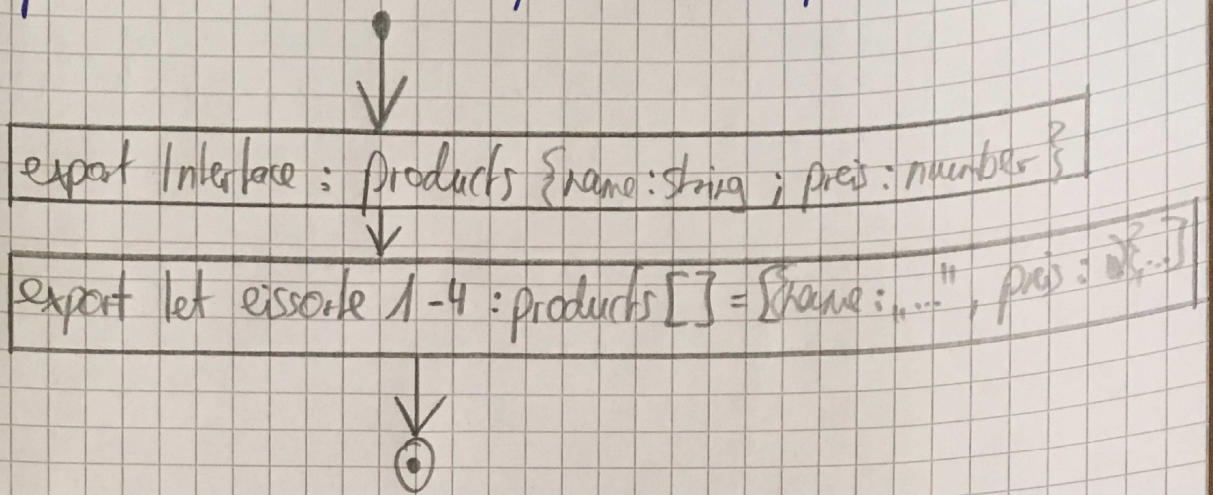 export Interface : products {name:string ; preis : number }
export let eissorte 1-4 : products [ ] = [{name : „...", preis : }{...]